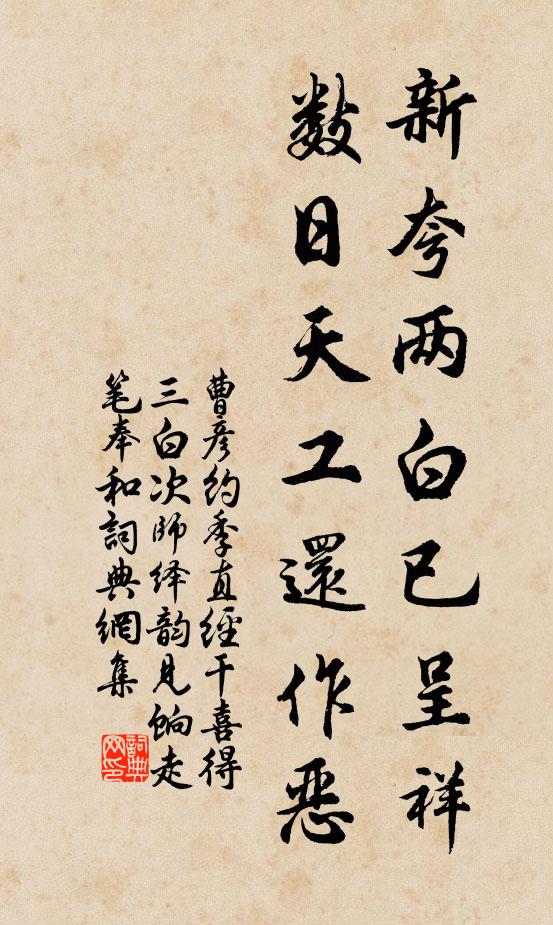 新夸两白已呈祥
数日天工還作恶
曹彦约季直經干喜得
三白次師绎韵見餉走
笔奉和詞典網集
詞典网印